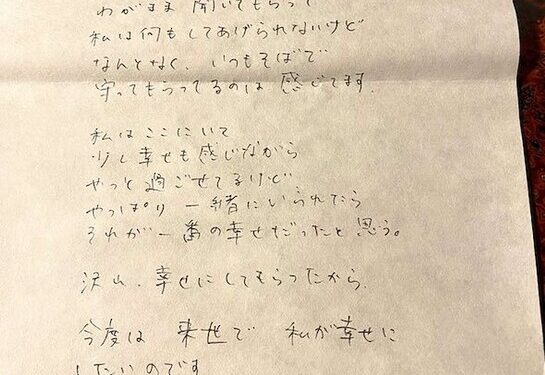 わがまま 聞いてもらって
私は何もしてあげられないけど
なんとなく、いつもそばで
守ってもらってるのは 感じてます.
私はここにいて
少し幸せも感じながら
やっと過ごせてるけど
やっぱり 一緒にいられたら
それが一番の幸せだったと思う。
沢山、幸せにしてもらったから.
今度は 来世で 私が幸せに
したいのです